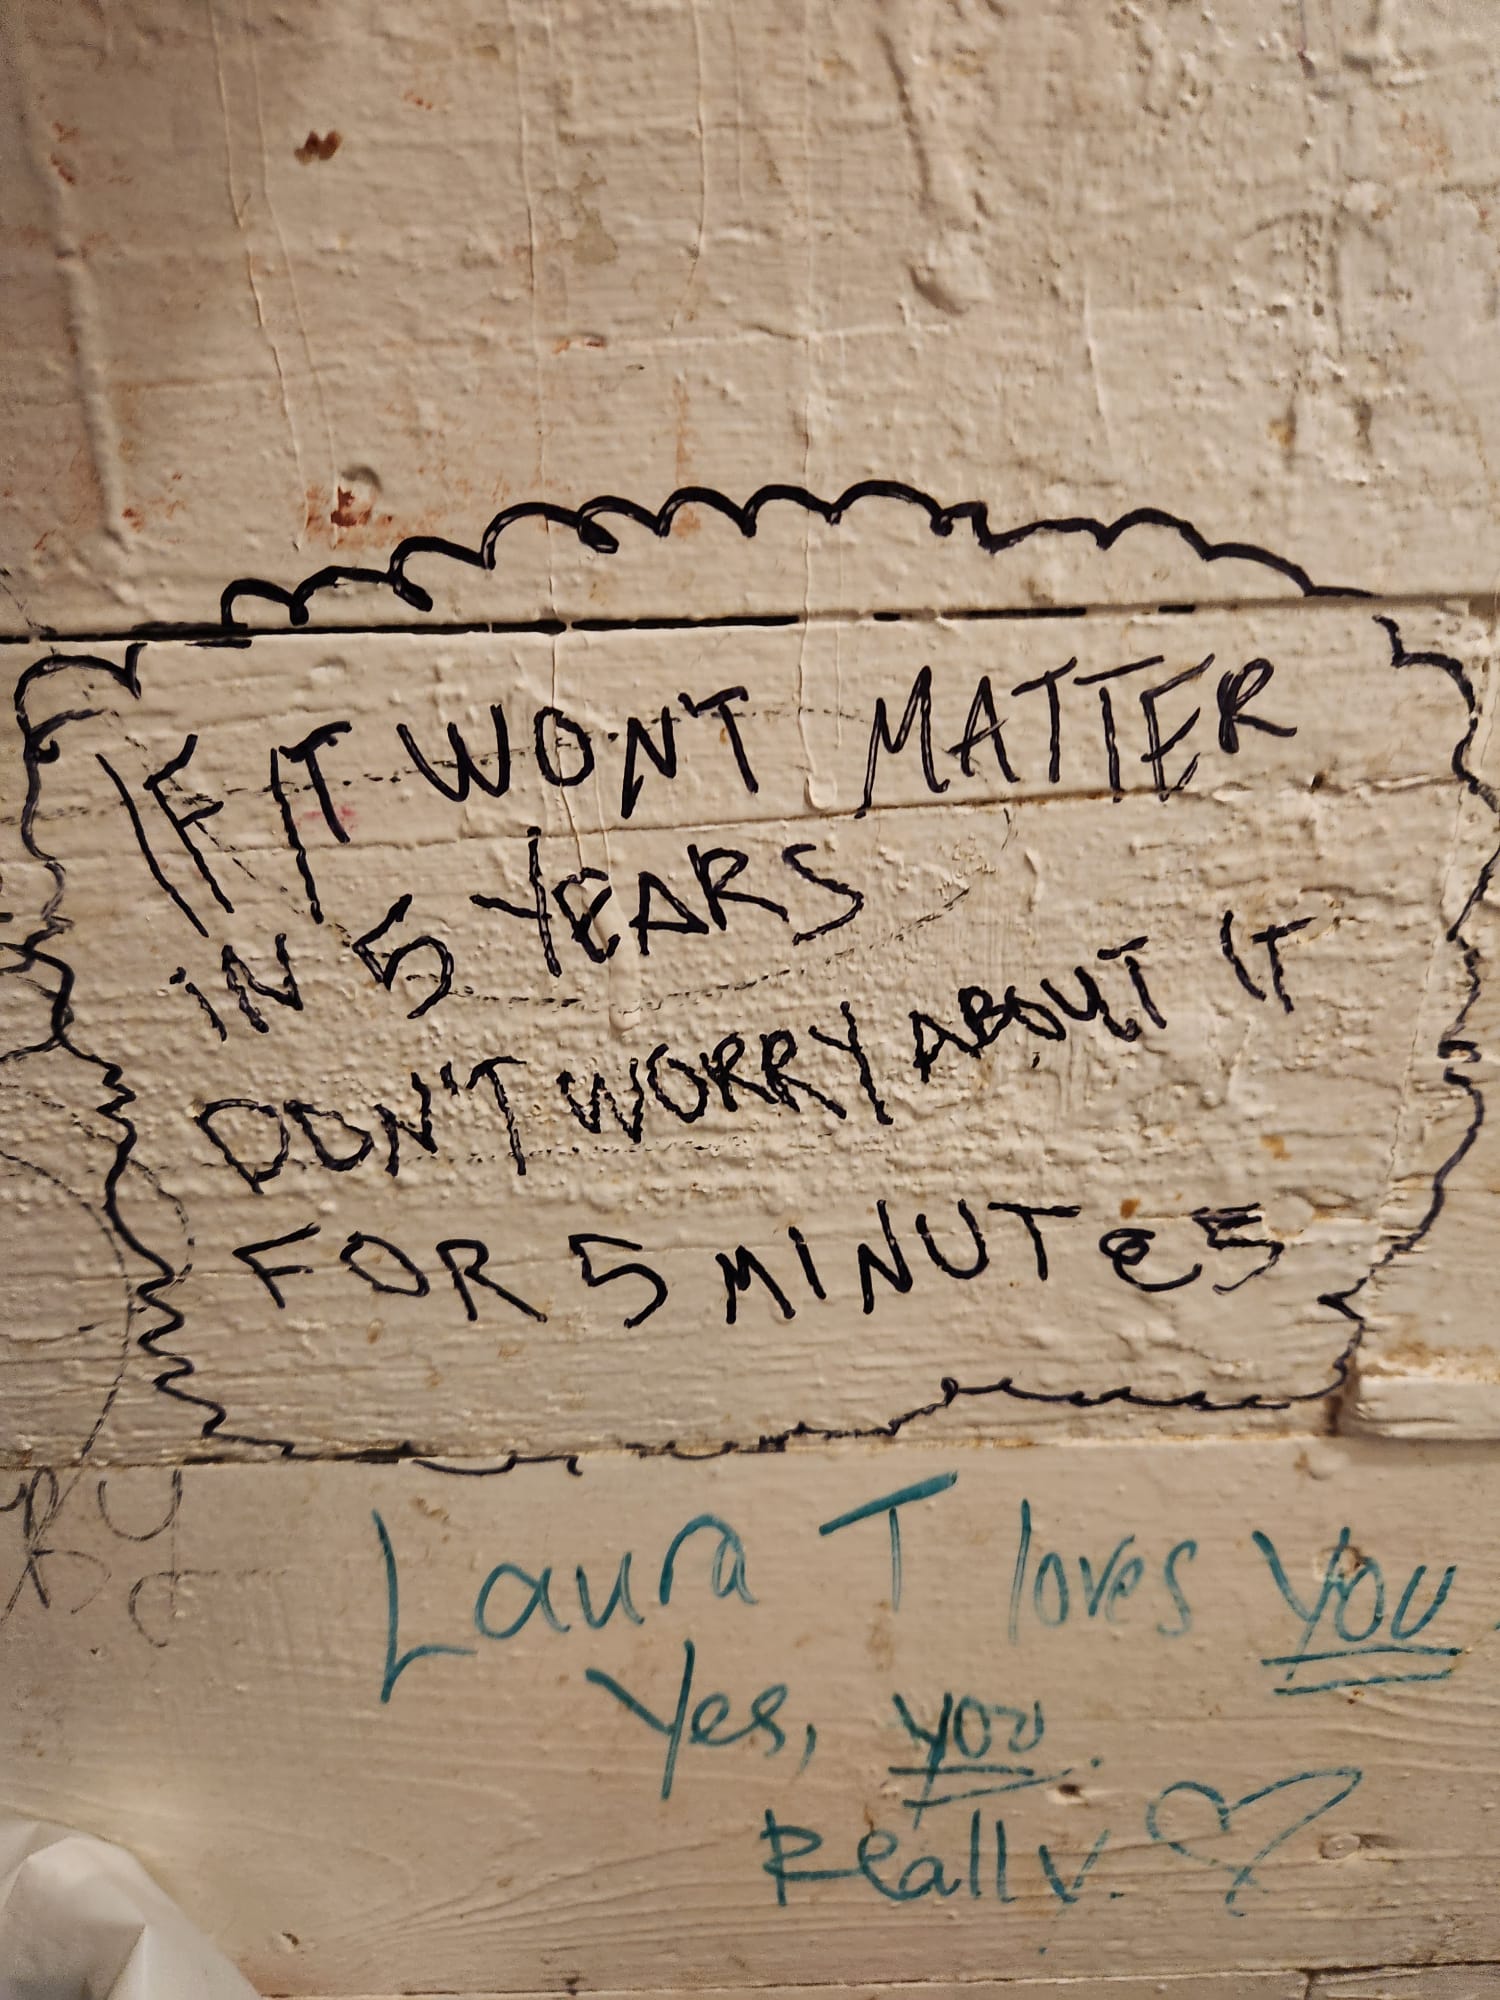 IF IT WON'T MATTER
iN 5 YEARS
DON'T WORRY ABOUT IT
FOR 5 MINUTeS
Laura T loves you
Yes, you.
Really.